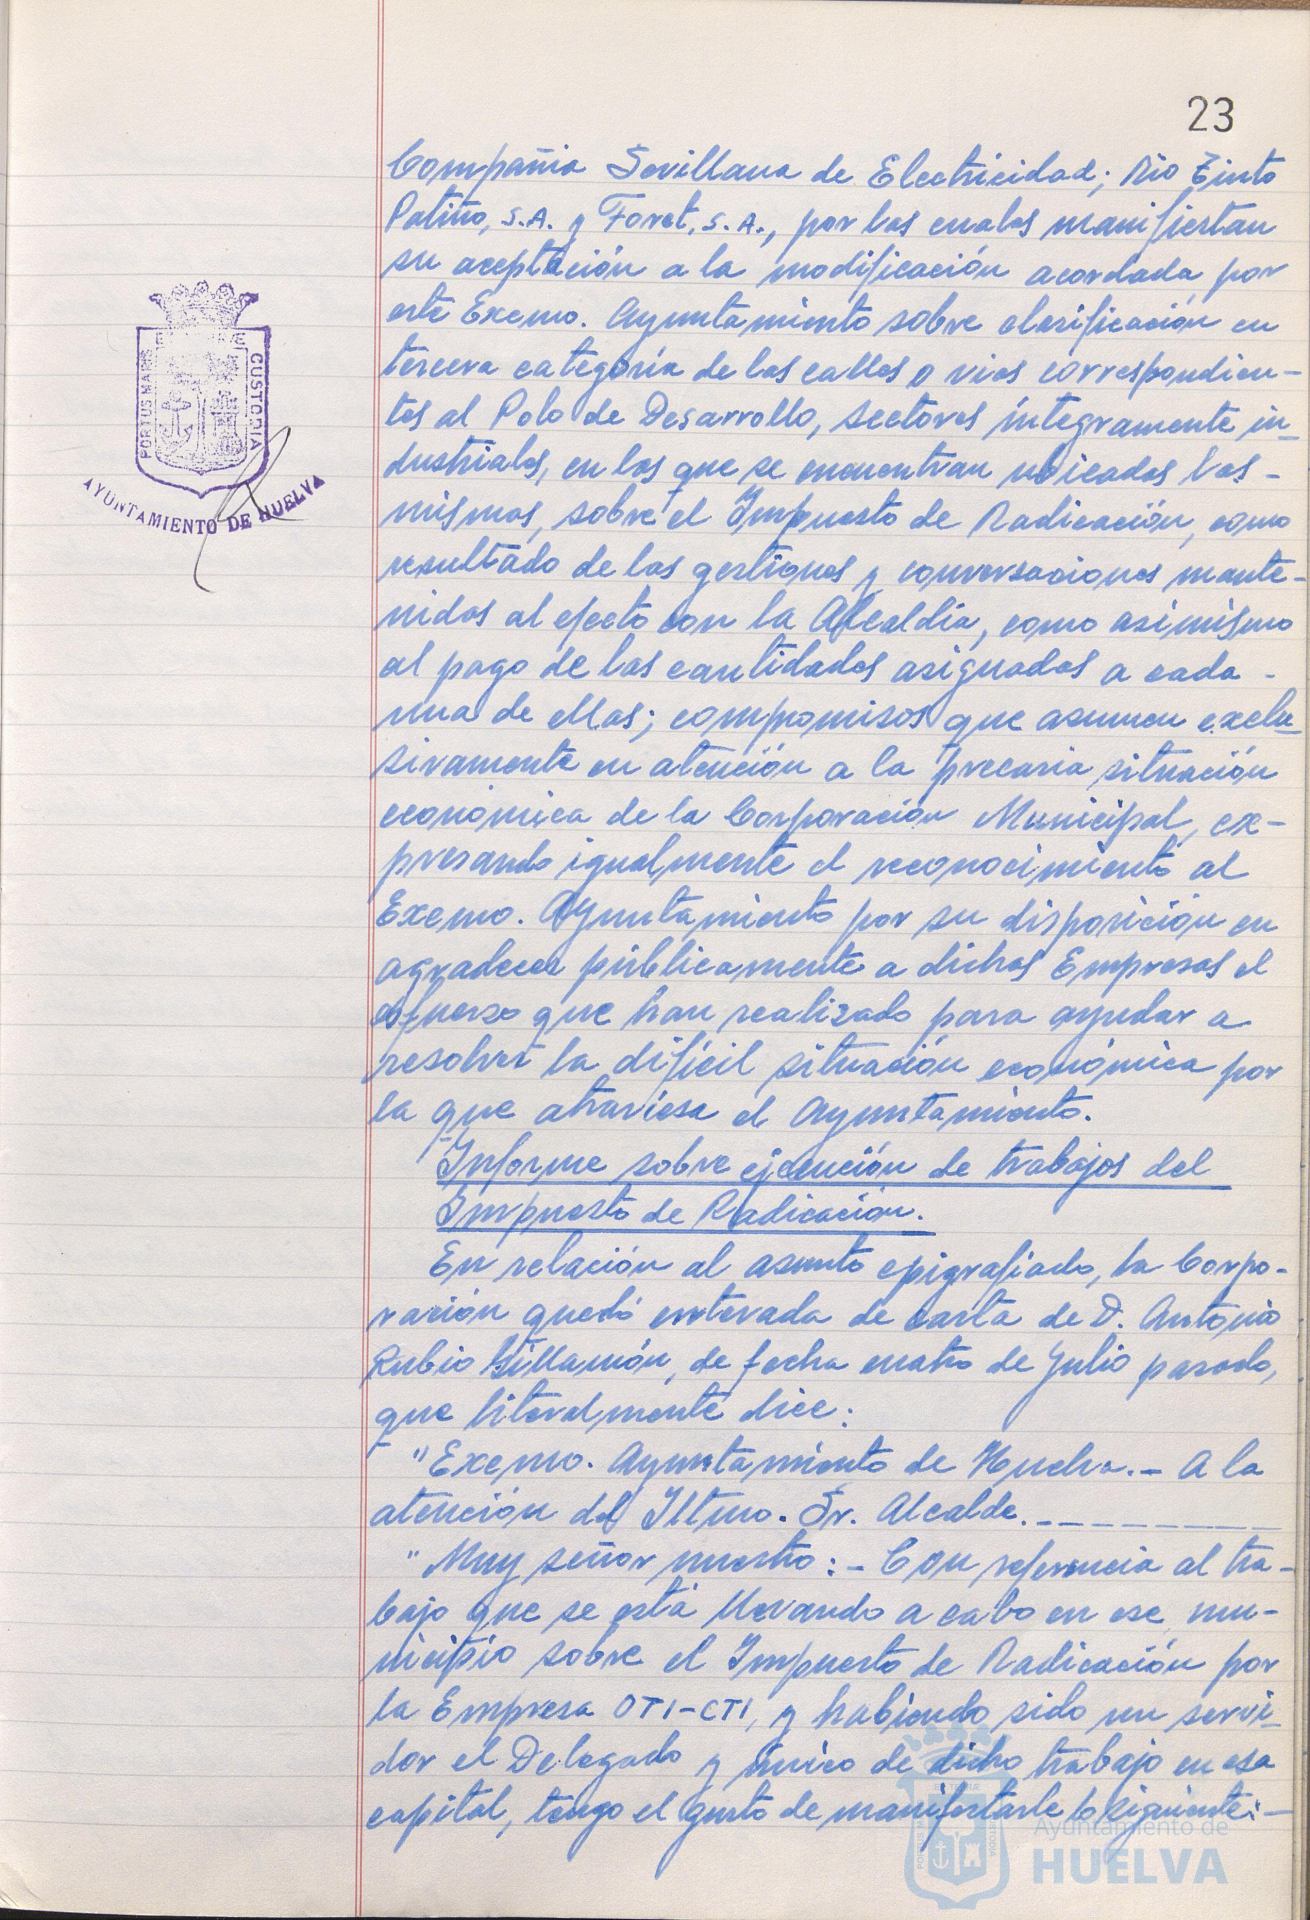 23
Compañia Sevillana de Electricidad; Rio Tinto
Patiño, S.A. y Foret, S.A., por las cuales manifiestan
su aceptación a la modificación acordada por
este Excmo. Ayuntamiento sobre clasificación en
tercera categoría de las calles o vias correspondien-
tes al Polo de Desarrollo, sectores íntegramente in-
dustriales, en los que se encuentran ubicadas las-
mismas, sobre el Impuesto de Radicación, como
resultado de las gestiones y conversaciones mante-
nidas al efecto con la Alcaldía, como asimismo
al pago de las cantidades asignadas a cada -
una de ellas; compromisos que asumen exclu-
sivamente en atención a la precaria situación
económica de la Corporación Municipal, ex-
presando igualmente el reconocimiento al
Excmo. Ayuntamiento por su disposición en
agradecer públicamente a dichas Empresas el
esfuerzo que han realizado para ayudar a
resolver la difícil situación económica por
la que atraviesa el Ayuntamiento.
Informe sobre ejecución de trabajos del
Impuesto de Radicación.
En relación al asunto epigrafiado, la Corpo-
ración quedó enterada de carta de D. Antonio
Rubio de fecha cuatro de Julio pasado,
que literalmente dice:
"Excmo. Ayuntamiento de Huelva.- A la
atención del Iltmo. Sr. Alcalde.
"Muy señor nuestro:- Con referencia al tra-
bajo que se está llevando a cabo en ese mu-
nicipio sobre el Impuesto de Radicación por
la Empresa OTI-CTI, y habiendo sido un servi-
dor el Delegado y único de dicho trabajo en esa
capital, tengo el gusto de manifestarle lo siguiente:-
PORTUS MARIS
CUSTODIA
AYUNTAMIENTO DE HUELVA
Ayuntamiento de
HUELVA